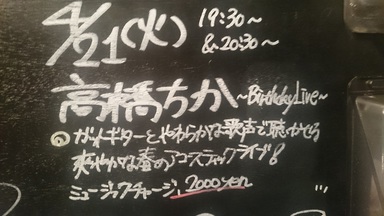 4/21(火) 19:30~
&20:30~
高橋ちか ~Birthday Live~
ガットギターとやわらかな歌声で聴かせる
爽やかな春のアコースティックライブ!
ミュージックチャージ: 2000yen